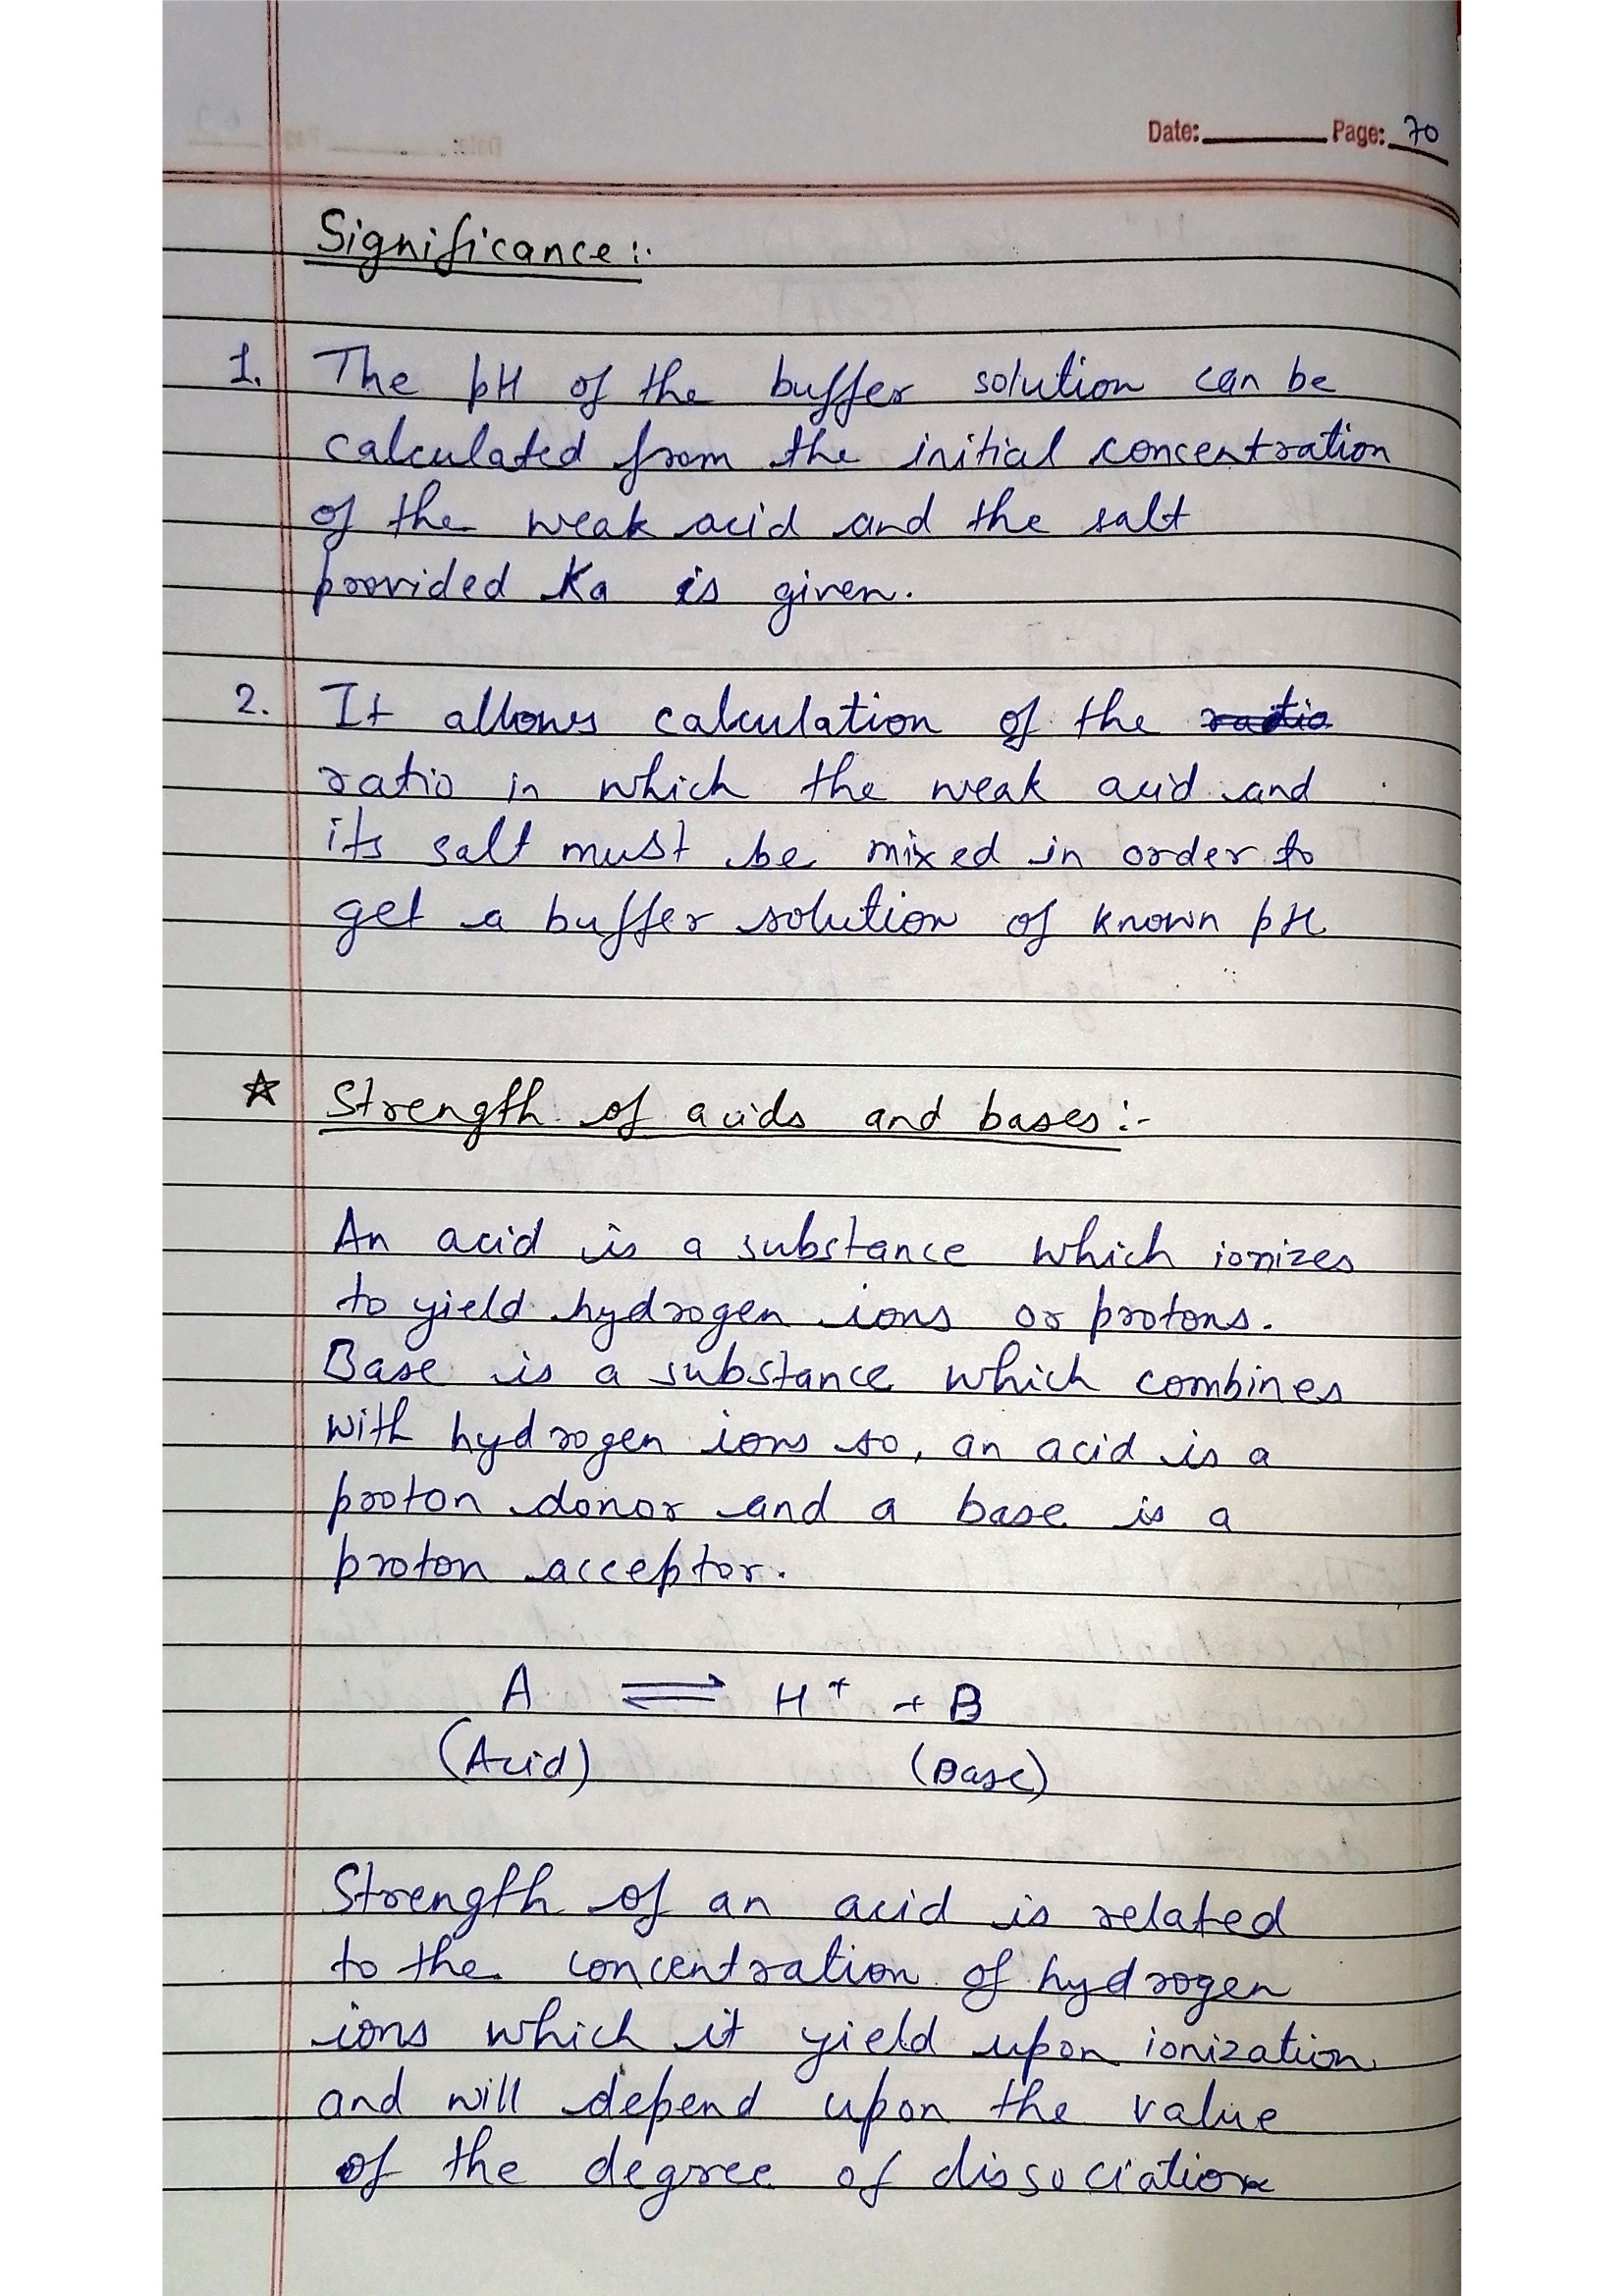 Date: Page: 70
Significance :-
1. The pH of the buffer solution can be
calculated from the initial concentration
of the weak acid and the salt
provided Ka is given.
2. It allows calculation of the ratio
ratio in which the weak acid and
its salt must be mixed in order to
get a buffer solution of known pH
☆ Strength of acids and bases :-
An acid is a substance which ionizes
to yield hydrogen ions or protons.
Base is a substance which combines
with hydrogen ions so, an acid is a
proton donor and a base is a
proton acceptor.
A ⇌ H⁺ + B
(Acid) (Base)
Strength of an acid is related
to the concentration of hydrogen
ions which it yield upon ionization
and will depend upon the value
of the degree of dissociation